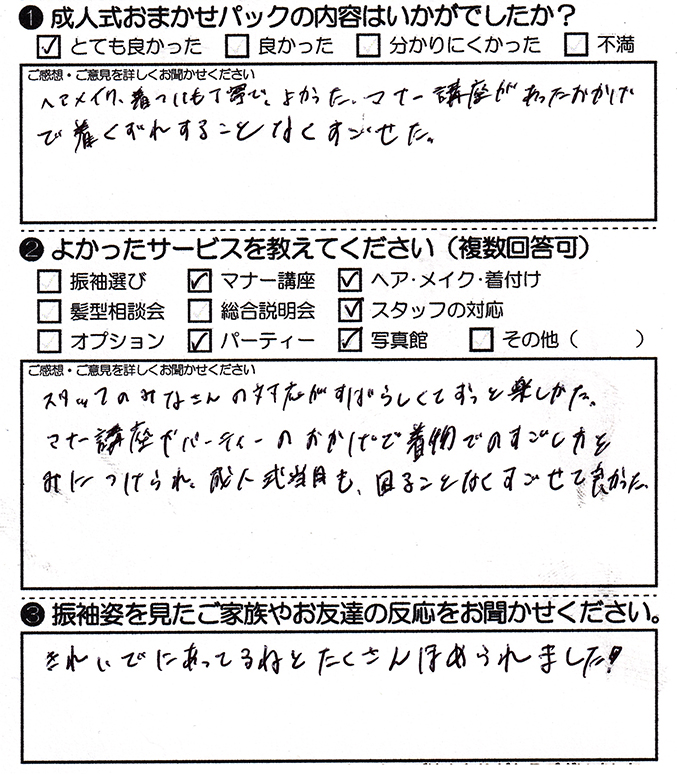 ❶ 成人式おまかせパックの内容はいかがでしたか？
☑ とても良かった ☐ 良かった ☐ 分かりにくかった ☐ 不満
ご感想・ご意見を詳しくお聞かせください
ヘアメイク、着つけも丁寧で、よかった。マナー講座があったおかげ
で着くずれすることなくすごせた。
❷ よかったサービスを教えてください（複数回答可）
☐ 振袖選び ☑ マナー講座 ☑ ヘア・メイク・着付け
☐ 髪型相談会 ☐ 総合説明会 ☑ スタッフの対応
☐ オプション ☑ パーティー ☑ 写真館 ☐ その他（　　）
ご感想・ご意見を詳しくお聞かせください
スタッフのみなさんの対応がすばらしくてずっと楽しかた。
マナー講座やパーティーのおかげで着物でのすごし方を
みにつけられ、成人式当日も、困ることなくすごせて良かった
❸ 振袖姿を見たご家族やお友達の反応をお聞かせください。
きれいでにあってるねとたくさんほめられました!